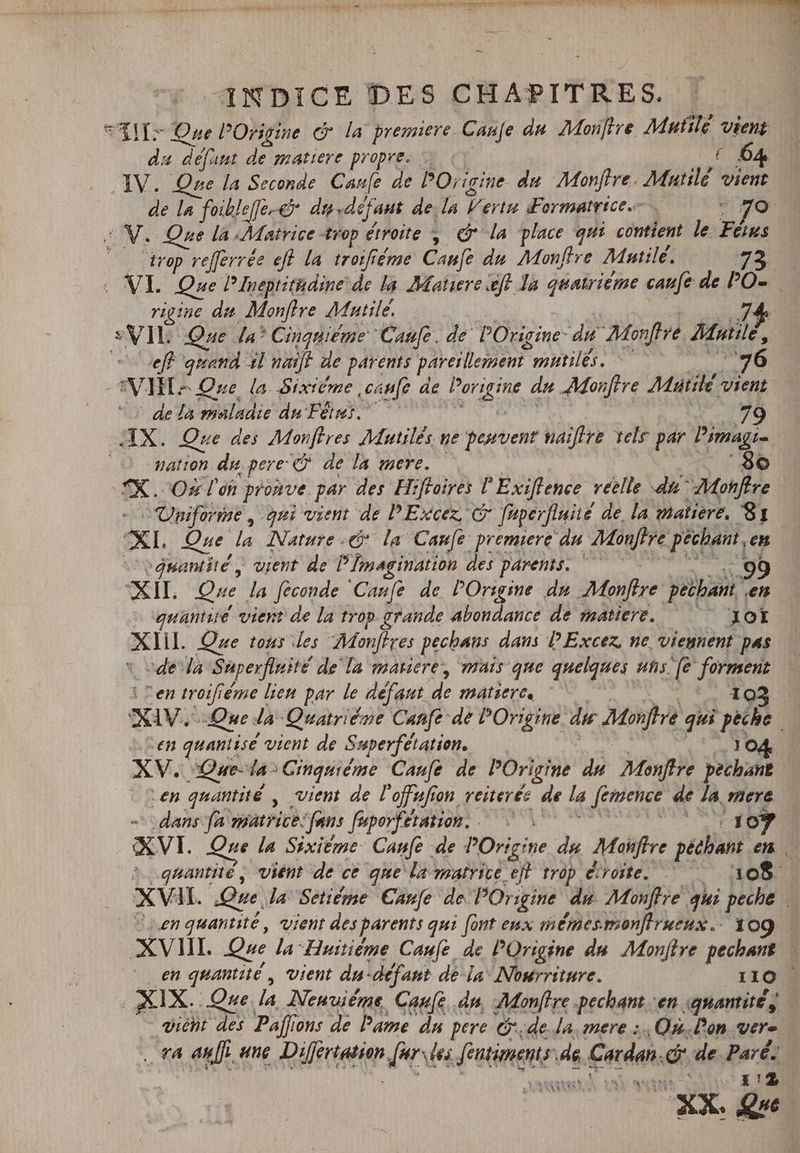 INDICE DES CHAPITRES.
III. Que l'Origine & la premiere Cause du Monstre Mutilé vient
du défaut de matiere propre. 64
IV. Que la Seconde Cause de l'Origine du Monstre Mutilé vient
de la foiblesse & du défaut de la Vertu Formatrice. 70
V. Que la Matrice trop étroite, & la place qui contient le Fétus
trop resserrée est la troisiéme Cause du Monstre Mutilé. 73
VI. Que l'Ineptitudine de la Matiere est la quatriéme cause de l'O-
rigine du Monstre Mutilé. 74
VII. Que la Cinquiéme Cause de l'Origine du Monstre Mutilé,
est quand il naist de parents pareillement mutilés. 76
VIII. Que la Sixiéme cause de l'origine du Monstre Mutilé vient
de la maladie du Fétus. 79
IX. Que des Monstres Mutilés ne peuvent naistre tels par l'imagi-
nation du pere & de la mere. 80
X. Où l'on prouve par des Histoires l'Existence réelle du Monstre
Uniforme, qui vient de l'Excez & superfluité de la matiere. 81
XI. Que la Nature & la Cause premiere du Monstre péchant en
quantité, vient de l'Imagination des parents. 99
XII. Que la seconde Cause de l'Origine du Monstre péchant en
quantité vient de la trop grande abondance de matiere. 101
XIII. Que tous les Monstres pechans dans l'Excez ne viennent pas
de la Superfluité de la matiere, mais que quelques uns se forment
en troisiéme lieu par le défaut de matiere. 103
XIV. Que la Quatriéme Cause de l'Origine du Monstre qui péche
en quantité vient de Superfétation. 104
XV. Que la Cinquiéme Cause de l'Origine du Monstre péchant
en quantité, vient de l'offusion reiterée de la semence de la mere
dans sa matrice sans superfétation. 107
XVI. Que la Sixiéme Cause de l'Origine du Monstre péchant en
quantité, vient de ce que la matrice est trop étroite. 108
XVII. Que la Setiéme Cause de l'Origine du Monstre qui peche
en quantité, vient des parents qui sont eux mémes monstrueux. 109
XVIII. Que la Huitiéme Cause de l'Origine du Monstre pechant
en quantité, vient du défaut de la Nourriture. 110
XIX. Que la Neuviéme Cause du Monstre pechant en quantité,
vient des Passions de l'ame du pere & de la mere : Où l'on ver-
ra aussi une Dissertation sur les sentiments de Cardan & de Paré.
112
XX. Que